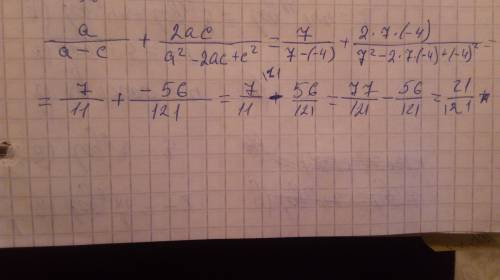 a/(a-c) + 2ac/(a²-2ac+c²) = 7/(7-(-4)) + 2·7·(-4)/(7²-2·7·(-4)+(-4)²) =
= 7/11 + -56/121 = 7/11 - 56/121 = 77/121 - 56/121 = 21/121